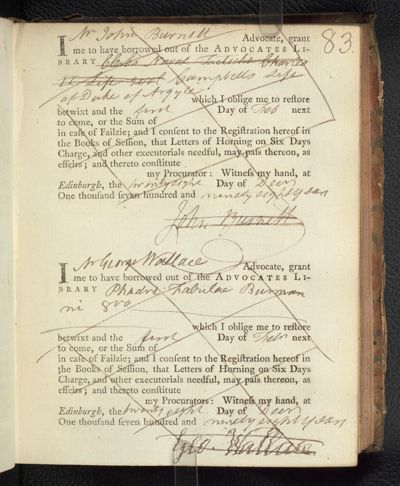 83.
I Mr John Burnett Advocate, grant
me to have borrowed out of the ADVOCATES LI-
BRARY Clerks Naval Tacticks Charles
Campbells Life
of Duke of Argyle.
which I oblige me to reſtore
betwixt and the firſt Day of Feb next
to come, or the Sum of
in caſe of Failzie; and I conſent to the Regiſtration hereof in
the Books of Seſſion, that Letters of Horning on Six Days
Charge, and other executorials needful, may paſs thereon, as
effeirs; and thereto conſtitute
my Procurator: Witneſs my hand, at
Edinburgh, the twenty eight Day of Decr
One thouſand ſeven hundred and ninety eight years
John Burnett
I Mr George Wallace Advocate, grant
me to have borrowed out of the ADVOCATES LI-
BRARY Phædri Fabulae Burman
ni 8vo
which I oblige me to reſtore
betwixt and the firſt Day of Febr next
to come, or the Sum of
in caſe of Failzie; and I conſent to the Regiſtration hereof in
the Books of Seſſion, that Letters of Horning on Six Days
Charge, and other executorials needful, may paſs thereon, as
effeirs; and thereto conſtitute
my Procurators: Witneſs my hand, at
Edinburgh, the twenty eight Day of Decr
One thouſand ſeven hundred and ninety eight years
Geo. Wallace